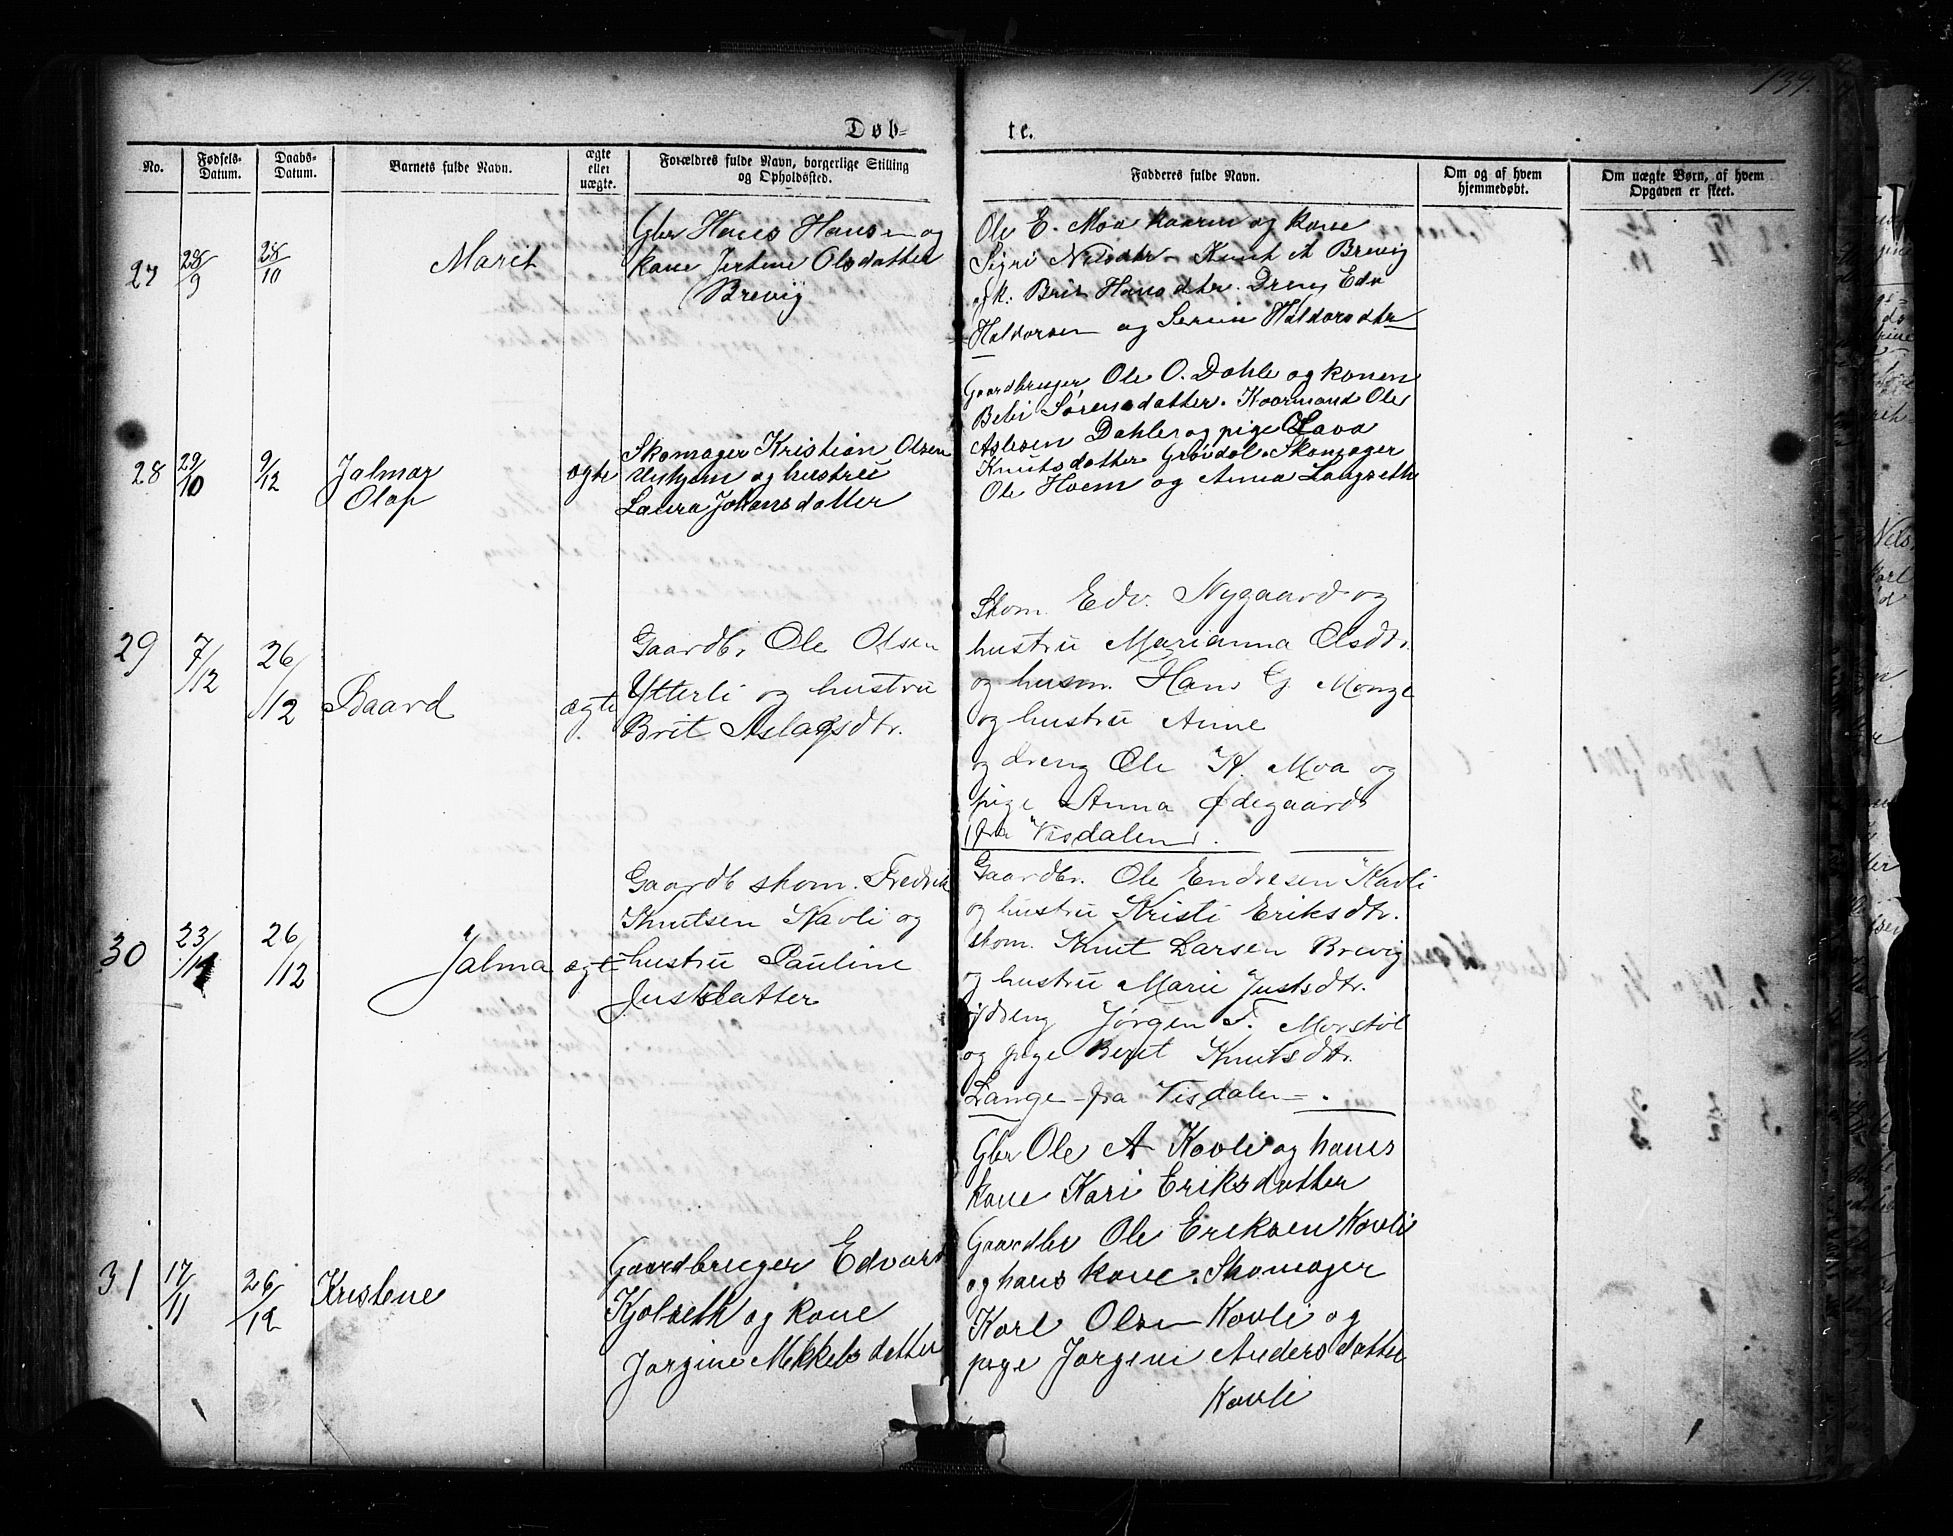 139.
Døb-
te.
No.
Fødsels-
Datum.
Daabs-
Datum.
Barnets fulde Navn.
ægte
eller
uægte.
Forældres fulde Navn, borgerlige Stilling
og Opholdssted.
Fadderes fulde Navn.
Om og af hvem
hjemmedøbt.
Om uægte Børn, af hvem
Opgaven er skeet.
27
28/9
28/10
Marit
Gbr Hans Hansen og
kone Jertine Olsdatter
Brevig
Ole E. Moa kaarm og kone
Sigri Nilsdtr. Knut A Brevig
og k. Brit Hansdtr. Dreng Edv
Haldorsen og Serine Haldorsdtr
28
29/10
9/12
Jalmar
Olaf
ægte
Skomager Kristian Olsen
og hustru
Laura Johansdatter
Gaardbruger Ole O. Dahle og konen
Bebi Sørensdatter. Koarmand Ole
Aslesen Dahle og pige Olava
Knutsdatter Grøvdal. Skomager
Ole Hoem og Anna Langseth
29
7/12
26/12
Baard
ægte
Gaardbr. Ole Olsen
Ytterli og hustru
Brit Aslagsdtr.
Skom. Edv. Nygaard og
hustru Marianna Olsdtr.
og husm. Hans G. Monge
og hustru Anne
og dreng Ole K. Moa og
pige Anna Ødegaard
fra Visdalen.
30
23/11
26/12
Jalma
ægte
Gaardb skom. Fredrik
Knutsen Kavli og
hustru Pauline
Justsdatter
Gaardbr. Ole Endresen Kavli
og hustru Kristi Eriksdtr.
skom. Knut Larsen Brevig
og hustru Marie Justsdtr.
og dreng Jørgen F. Morstøl
og pige Berit Knutsdtr.
Lange - fra Visdalen - .
31
17/11
26/12
Kristene
Gaardbruger Edvard
Kjølseth og kone
Jørgine Mekkelsdatter
Gbr Ole A Kovli og hans
kone Kari Eriksdatter
Gaardbr Ole Eriksen Kovli
og hans kone. Skomager
Karl Olsen Kovli og
pige Jørgeni Andersdatter
Kovli